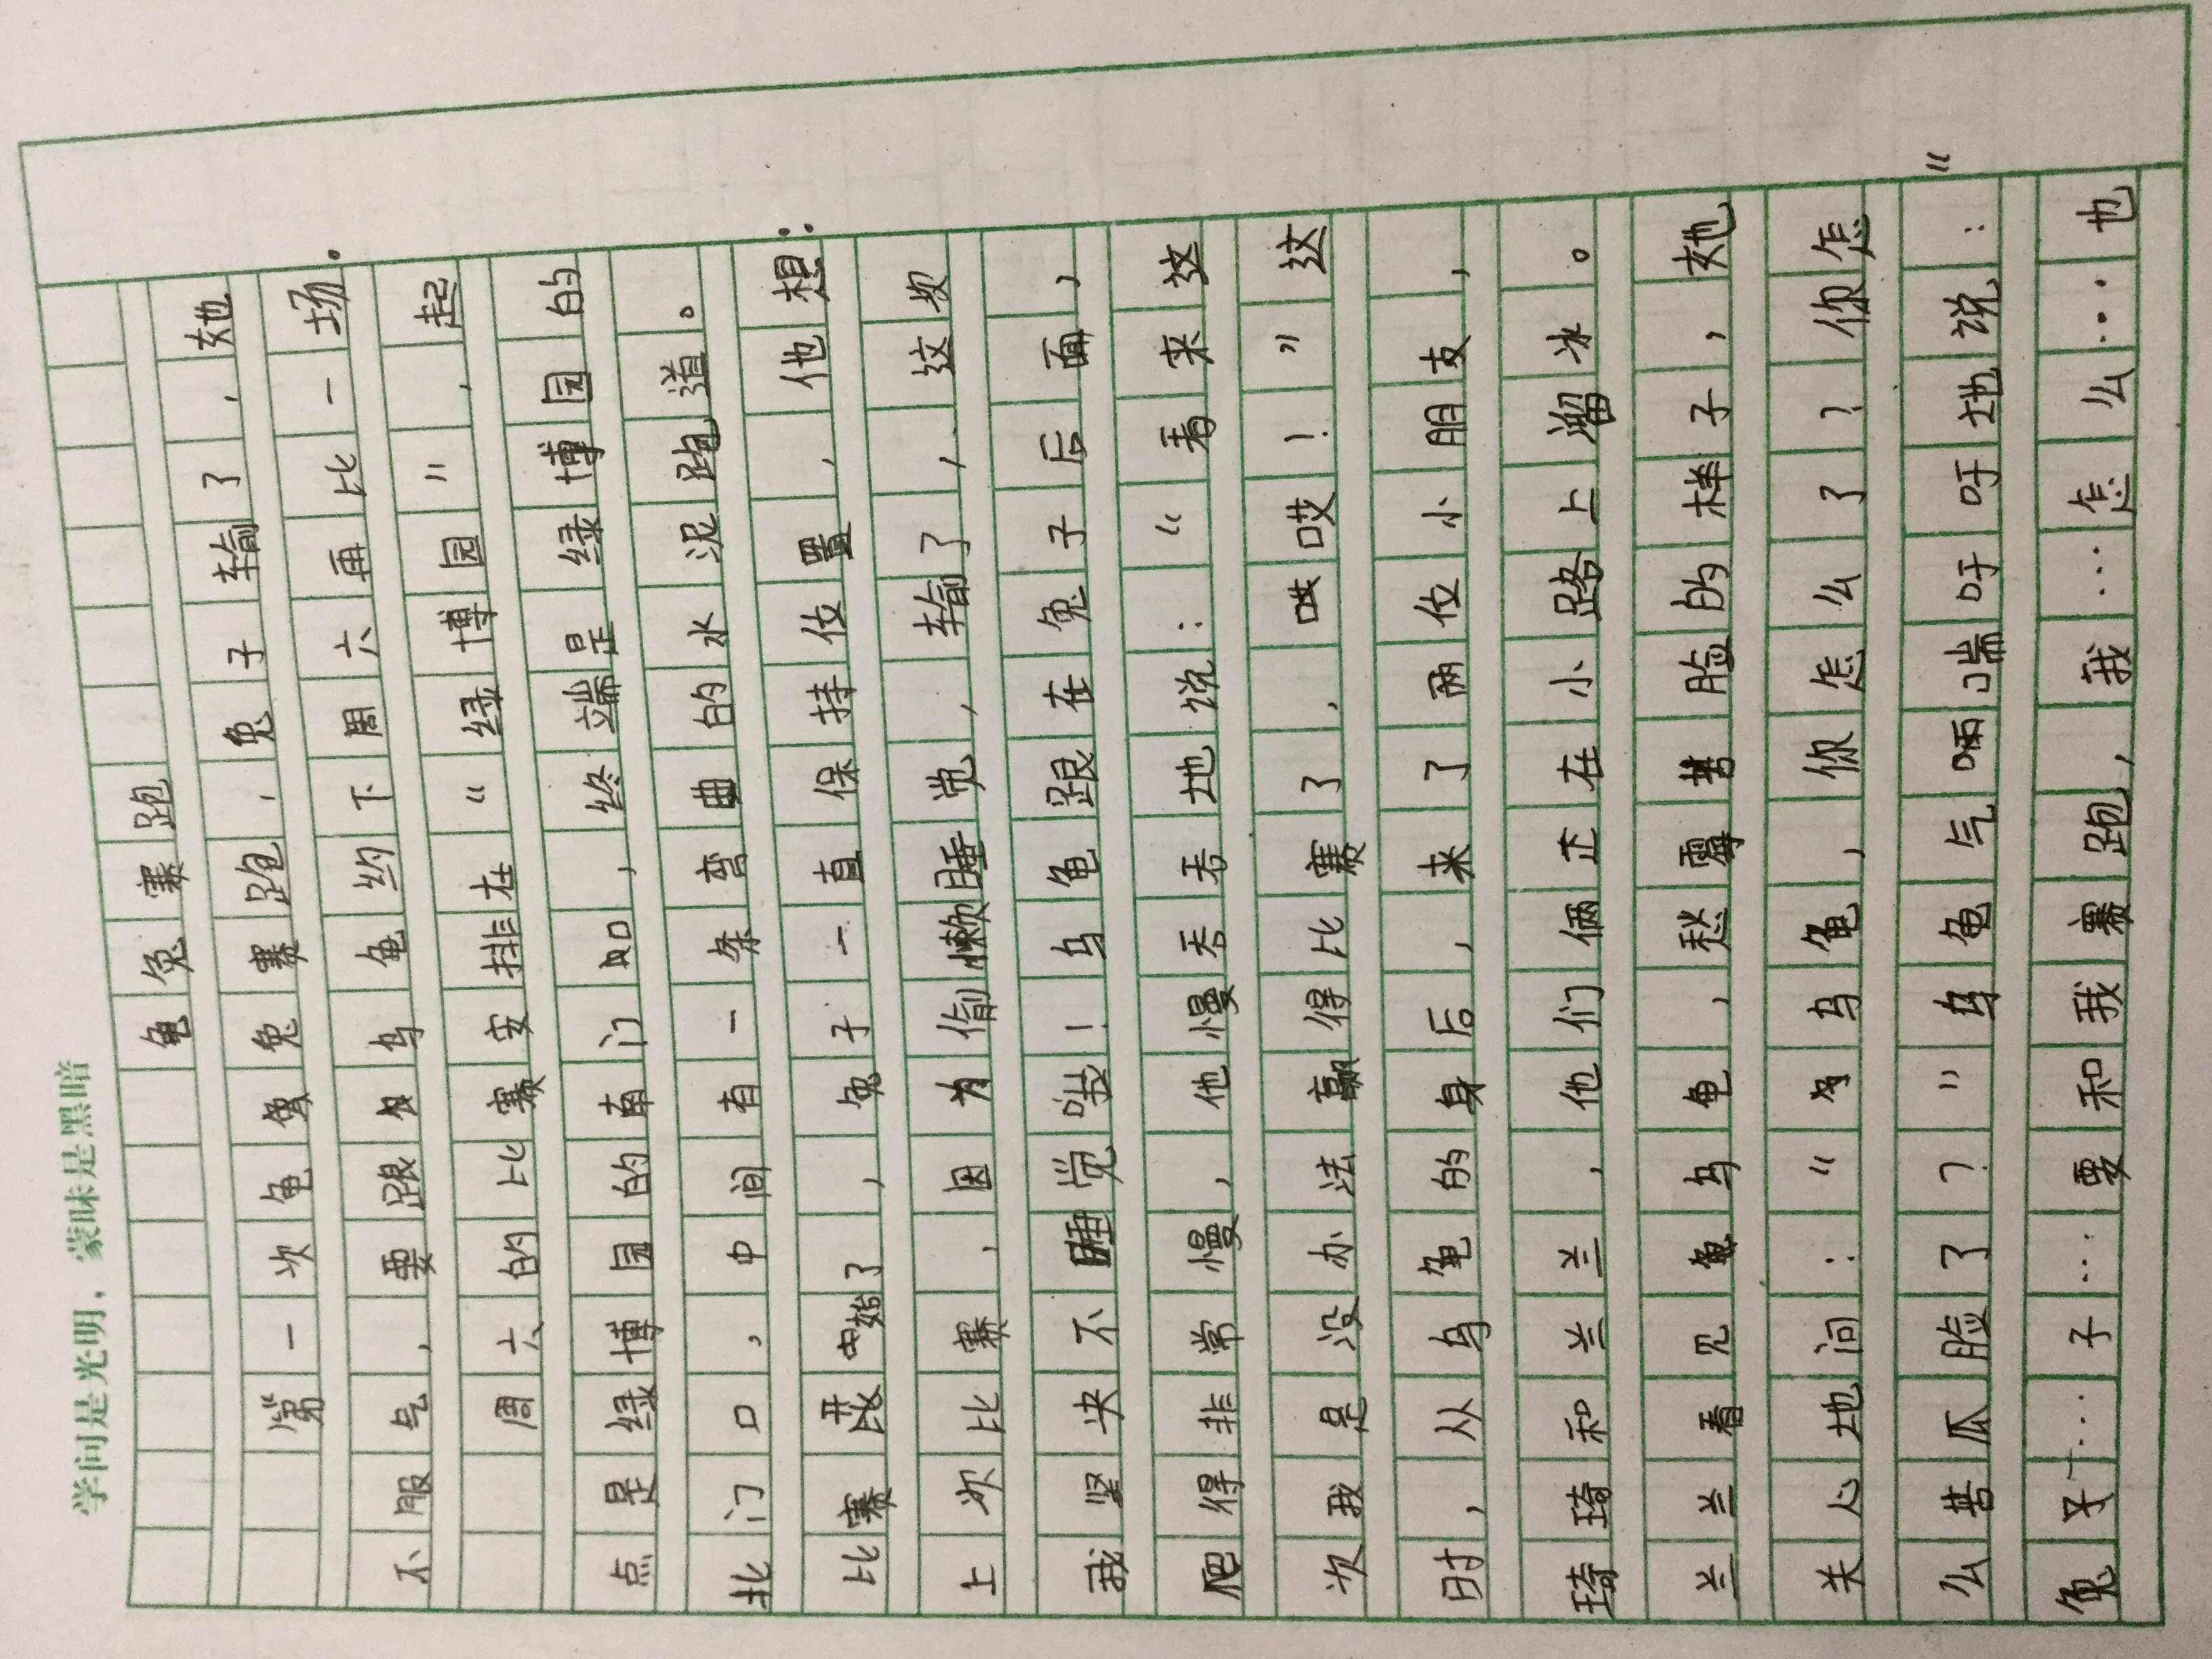 学问是光明，蒙昧是黑暗
龟兔赛跑
第一次龟兔赛跑，兔子输了，她
不服气，要跟乌龟约下周六再比一场。
周六的比赛安排在“绿博园”，起
点是绿博园的南门口，终端是绿博园的
北门口，中间有一条弯曲的水泥跑道。
比赛开始了，兔子一直保持位置，他想：
上次比赛，因为偷懒睡觉，输了，这次
我坚决不睡觉啦！乌龟跟在兔子后面，
爬得非常慢，他慢吞吞地说：“看来这
次我是没办法赢得比赛了，哄哎！”这
时，从乌龟的身后，来了两位小朋友，
琦琦和兰兰，他们俩正在小路上溜冰。
兰兰看见乌龟，愁霉苦脸的样子，她
关心地问：“乌龟，你怎么了？你怎
么苦瓜脸了？”乌龟气喘吁吁地说：“
兔子……子……要和我赛跑，我……怎么……也